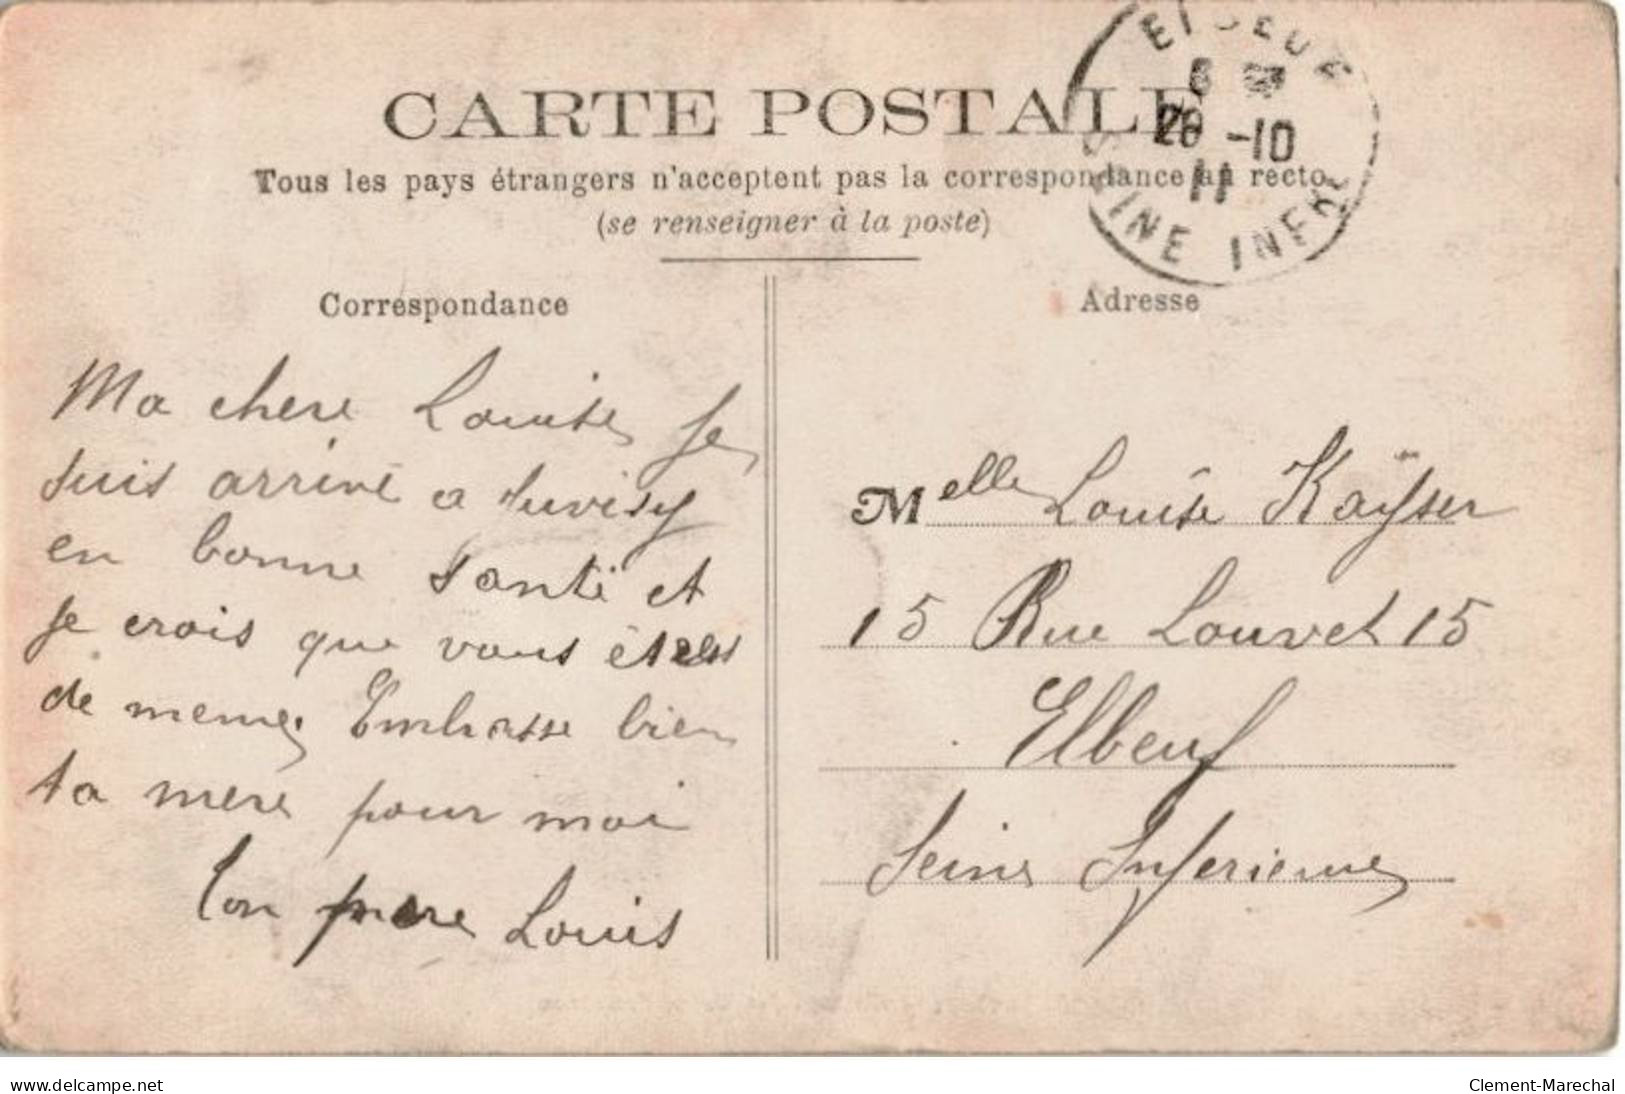 CARTE POSTALE
Tous les pays étrangers n'acceptent pas la correspondance au recto
(se renseigner à la poste)
ELBEUF
20 -10
11
SEINE INFRE
Correspondance
Ma chere Louise, Je
suis arrivé a Juvisy
en bonne santé et
je crois que vous êtes
de meme, Embrasse bien
ta mere pour moi
Ton pere Louis
Adresse
Melle Louise Kaÿser
15 Rue Louvet 15
Elbeuf
Seine Inferieure
www.delcampe.net
Clement-Marechal